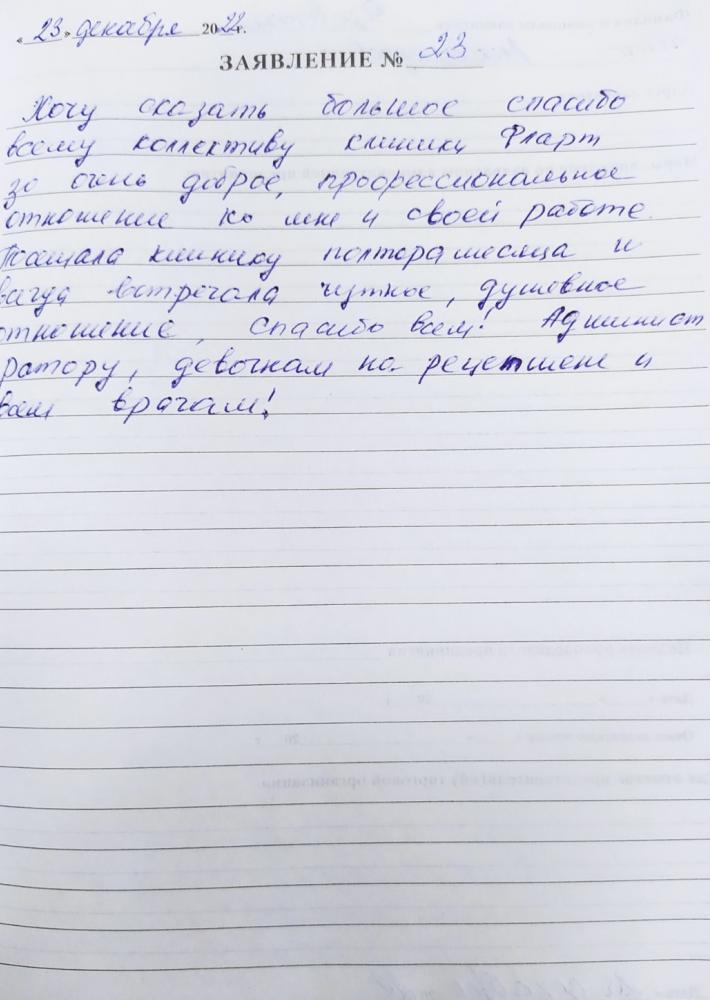 «23» декабря 2022г.
ЗАЯВЛЕНИЕ № 23
Хочу оказать большое спасибо
всему коллективу клиники Фларт
за очень доброе, профессиональное
отношение ко мне и своей работе.
Посещала клинику полтора месяца и
всегда встречала чуткое, душевное
отношение, спасибо всем! Админист
ратору, девочкам на рецепшене и
всем врачам!